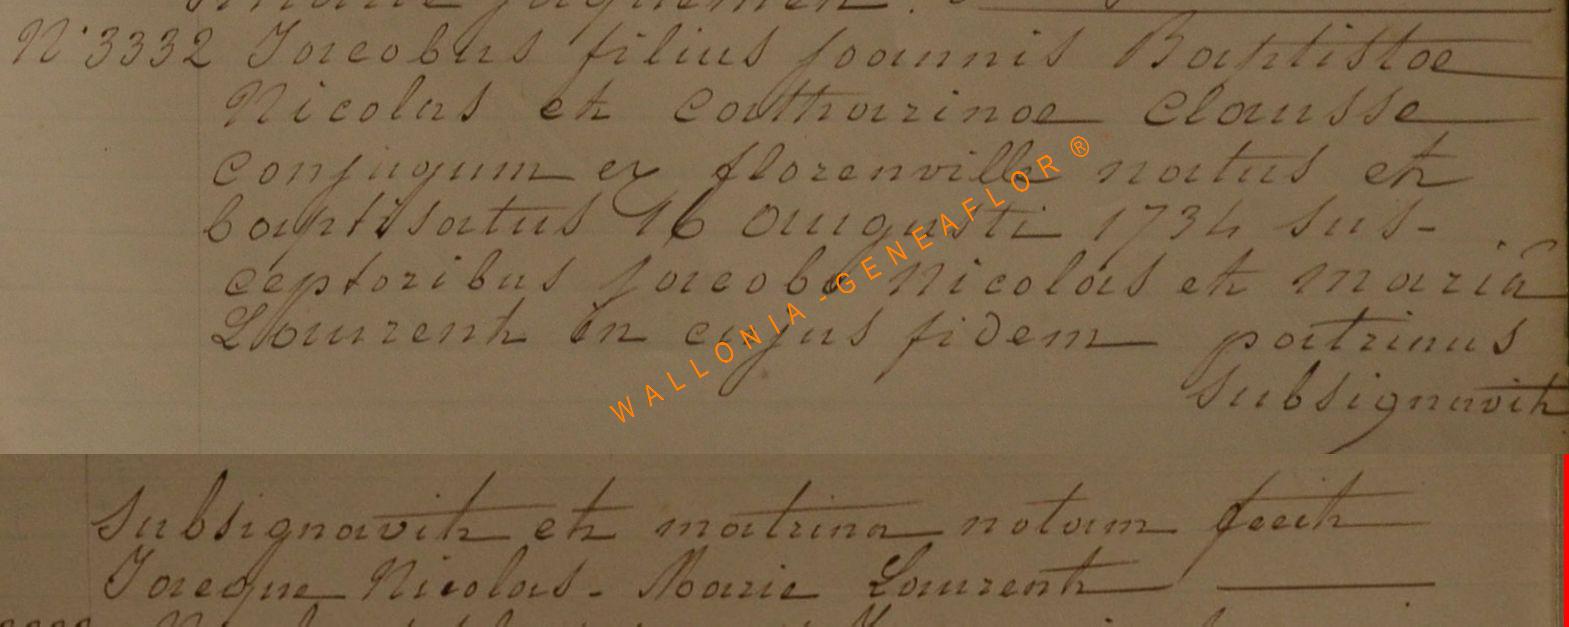 N° 3332 Jacobus filius joannis Baptistae
Nicolas et Catharinae Clausse
conjugum ex florenville natus et
baptisatus 16 augusti 1734 sus-
ceptoribus jacobo Nicolas et mariâ
Laurent in cujus fidem patrinus
subsignavit
subsignavit et matrina notam fecit
Jacque Nicolas - Marie Laurent
WALLONIA - GENEAFLOR ®